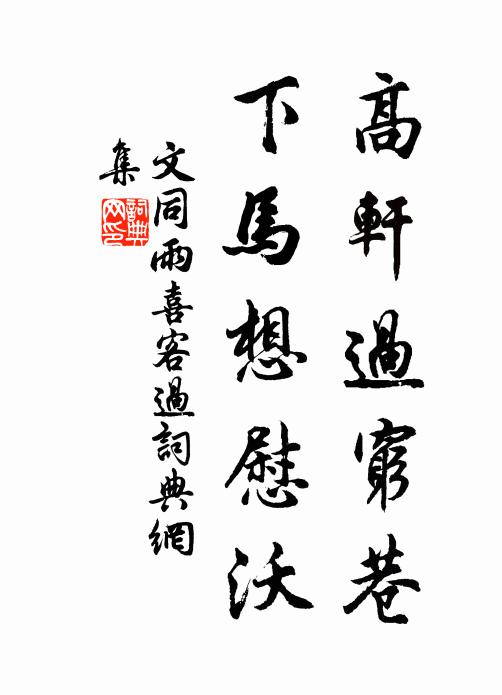 高軒過窮巷
下馬想慰沃
文同雨喜客過詞典網
集
詞典
网印